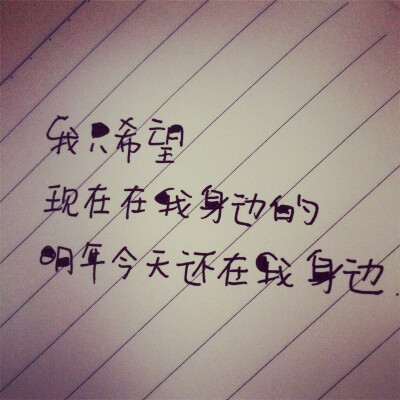 我只希望
现在在我身边的
明年今天还在我身边.